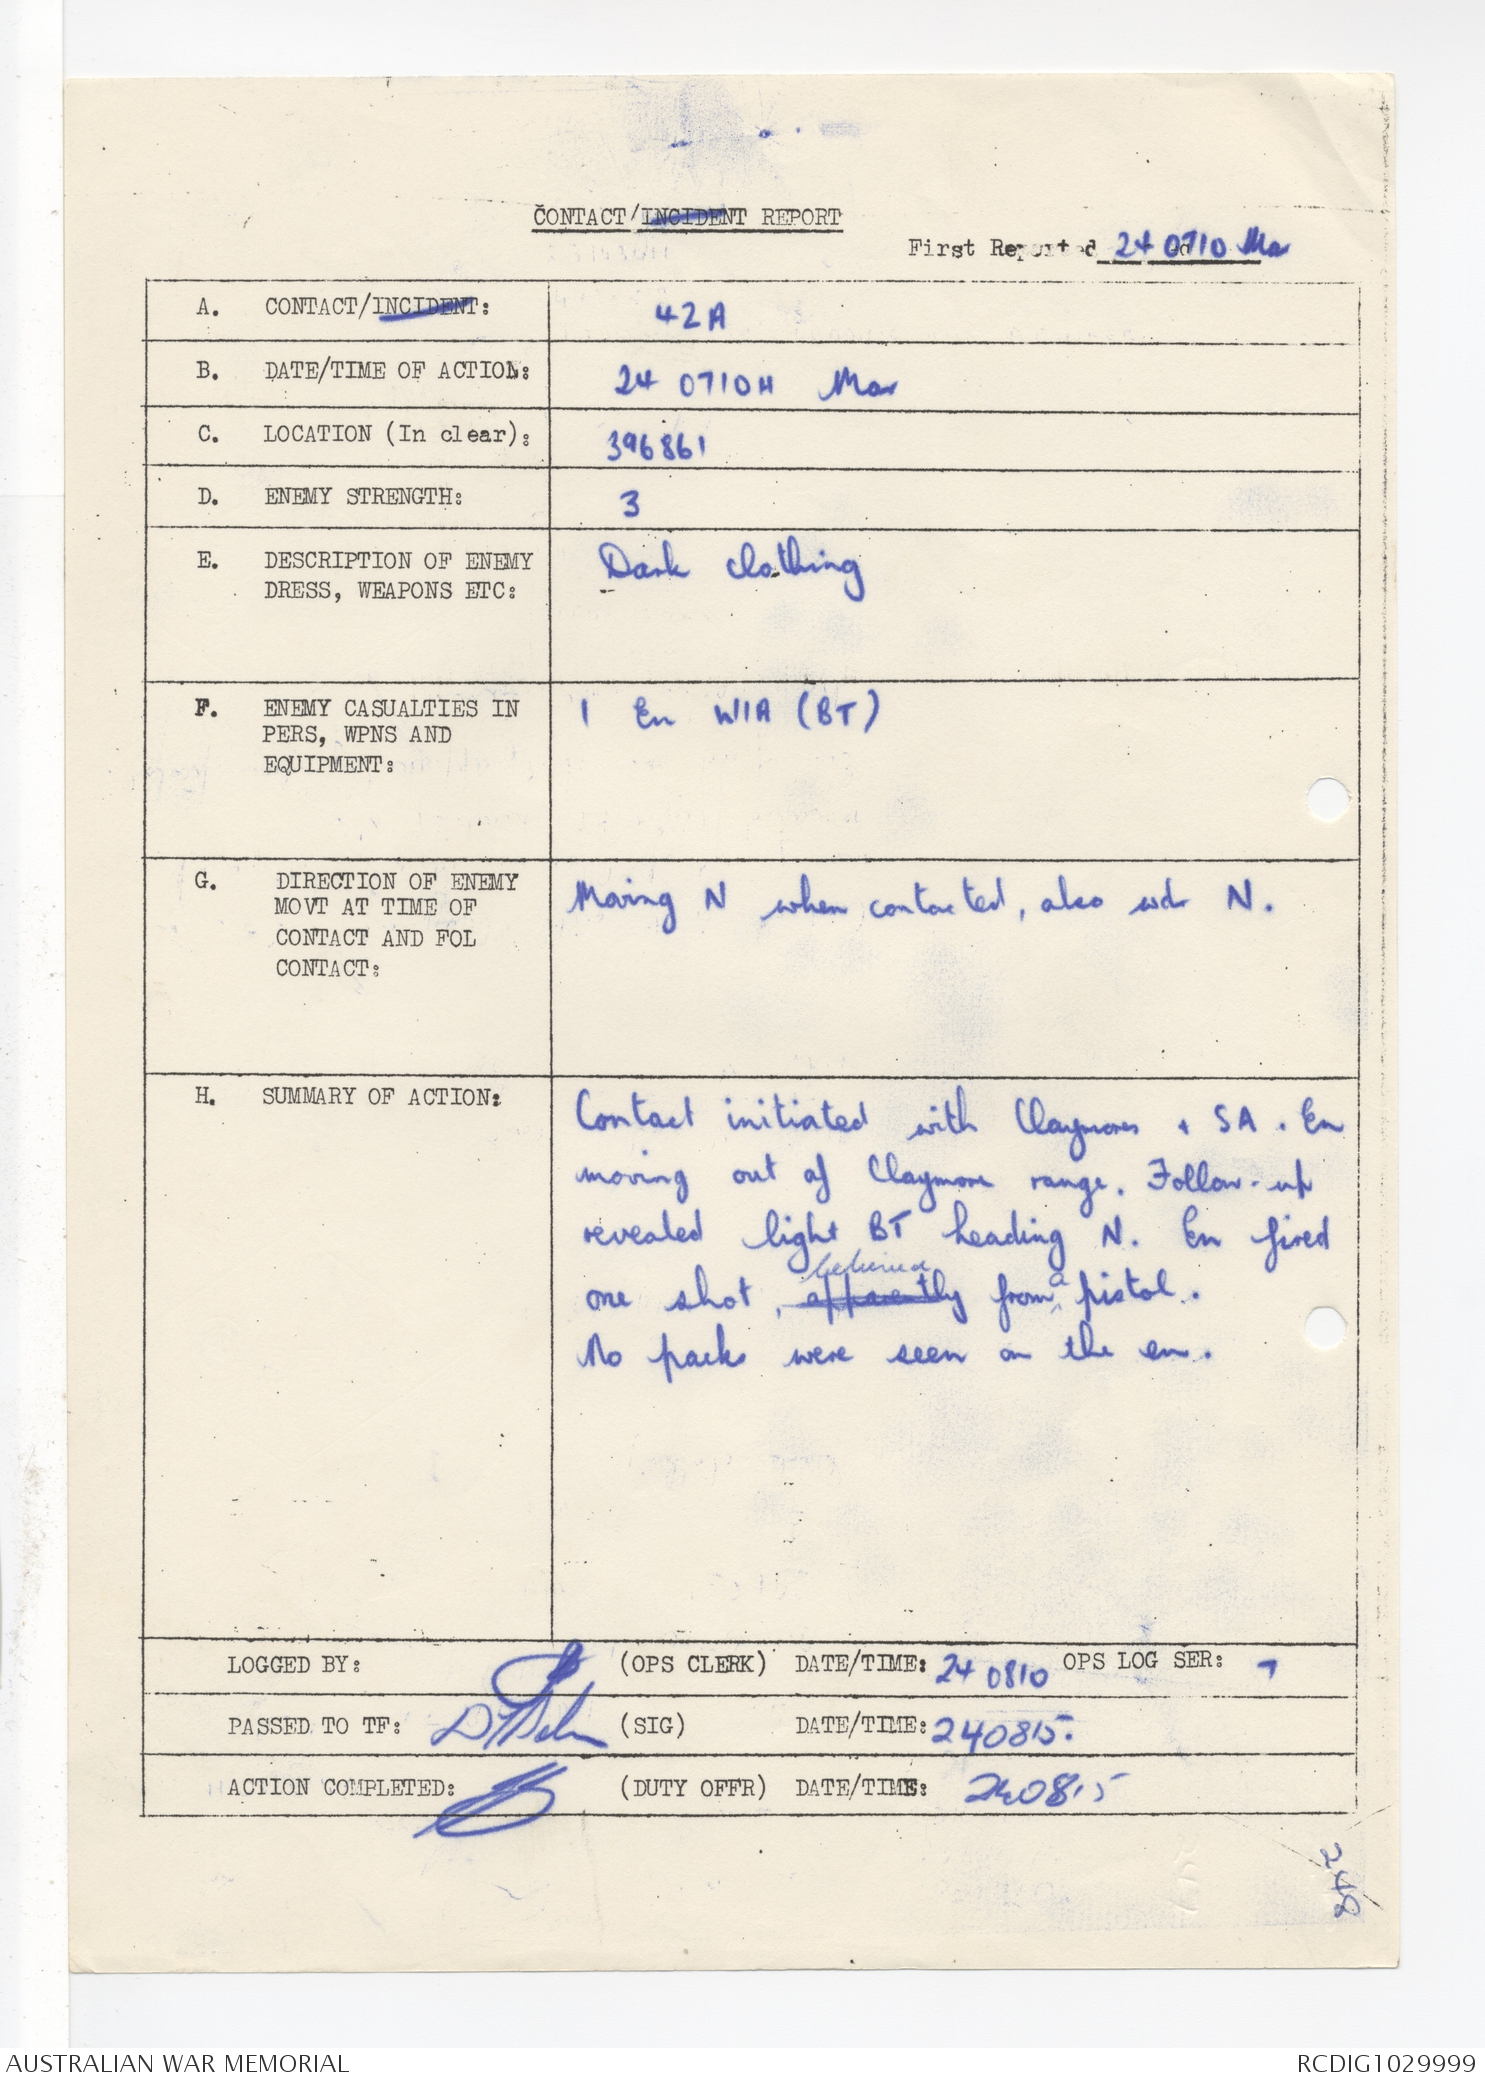 CONTACT/INCIDENT REPORT
First Reported 24 0710 Mar
A. CONTACT/INCIDENT: 42A
B. DATE/TIME OF ACTION: 24 0710H Mar
C. LOCATION (In clear): 396861
D. ENEMY STRENGTH: 3
E. DESCRIPTION OF ENEMY
DRESS, WEAPONS ETC:
Dark clothing
F. ENEMY CASUALTIES IN
PERS, WPNS AND
EQUIPMENT:
1 En WIA (BT)
G. DIRECTION OF ENEMY
MOVT AT TIME OF
CONTACT AND FOL
CONTACT:
Moving N when contacted, also wdr N.
H. SUMMARY OF ACTION:
Contact initiated with Claymores + SA. En
moving out of Claymore range. Follow-up
revealed light BT heading N. En fired
believed
one shot, apparently from a pistol.
No packs were seen on the en.
LOGGED BY: (OPS CLERK) DATE/TIME: 24 0810 OPS LOG SER: 7
PASSED TO TF: (SIG) DATE/TIME: 240815.
ACTION COMPLETED: (DUTY OFFR) DATE/TIME: 240815
248
AUSTRALIAN WAR MEMORIAL
RCDIG1029999